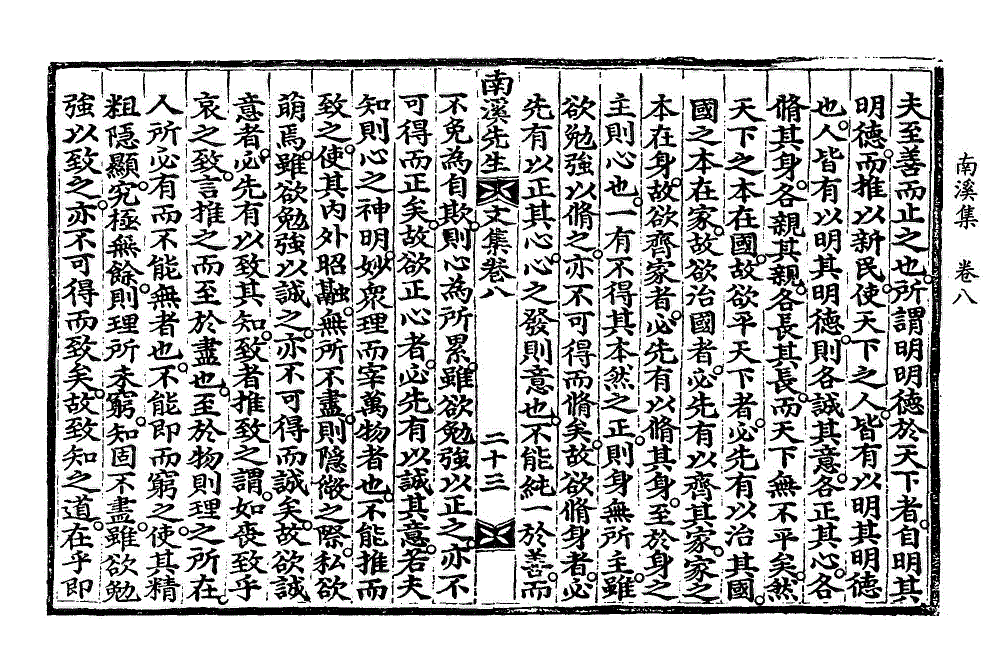 南溪集　卷八
夫至善而止之也所謂明明德於天下者自明其
明德而推以新民使天下之人皆有以明其明德
也人皆有以明其明德則各誠其意各正其心各
脩其身各親其親各長其長而天下無不平矣然
天下之本在國故欲平天下者必先有以治其國
國之本在家故欲治國者必先有以齊其家家之
本在身故欲齊家者必先有以脩其身至於身之
主則心也一有不得其本然之正則身無所主雖
欲勉強以脩之亦不可得而脩矣故欲脩身者必
先有以正其心心之發則意也不能純一於善而
南溪先生文集卷八　二十三
不免為自欺則心為所累雖欲勉強以正之亦不
可得而正矣故欲正心者必先有以誠其意若夫
知則心之神明妙衆理而宰萬物者也不能推而
致之使其內外昭融無所不盡則隐微之際私欲
萌焉雖欲勉強以誠之亦不可得而誠矣故欲誠
意者必先有以致其知致者推致之謂如喪致乎
哀之致言推之而至於盡也至於物則理之所在
人所必有而不能無者也不能即而窮之使其精
粗隱顯究極無餘則理所未窮知固不盡雖欲勉
強以致之亦不可得而致矣故致知之道在乎即